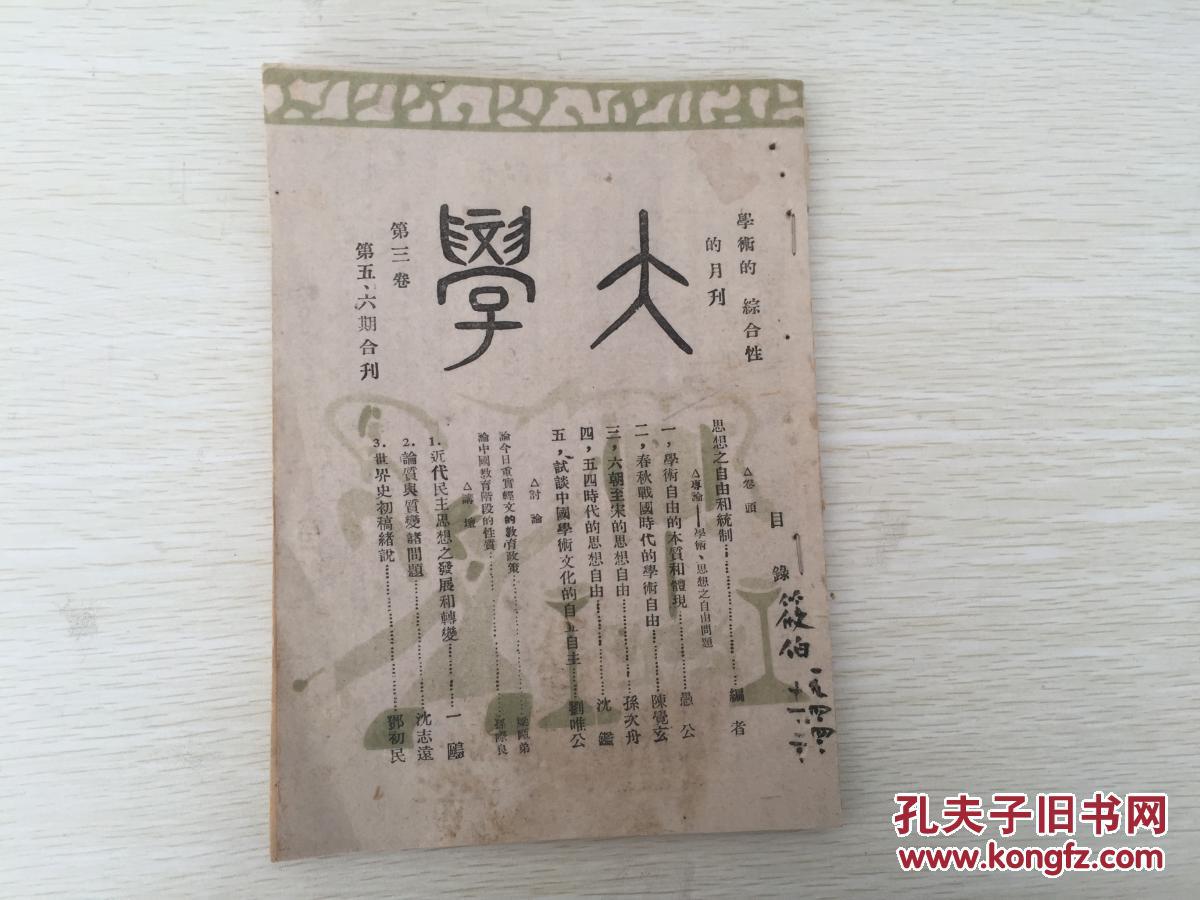 學術的 綜合性
的月刊
大學
第三卷
第五、六期合刊
目錄
△卷頭
思想之自由和統制…………編者
△專論——學術、思想之自由問題
一，學術自由的本質和體現…………愚公
二，春秋戰國時代的學術自由…………陳覺玄
三，六朝至宋的思想自由…………孫次舟
四，五四時代的思想自由…………沈鑑
五，試談中國學術文化的自立自主…………劉唯公
△討論
論今日重實經文的教育政策…………
論中國教育階段的性質…………孫際良
△講壇
1.近代民主思想之發展和轉變…………一鷗
2.論質與質變諸問題…………沈志遠
3.世界史初稿緒說…………鄧初民
筱伯
一九四四
十一
孔夫子旧书网
www.kongfz.com